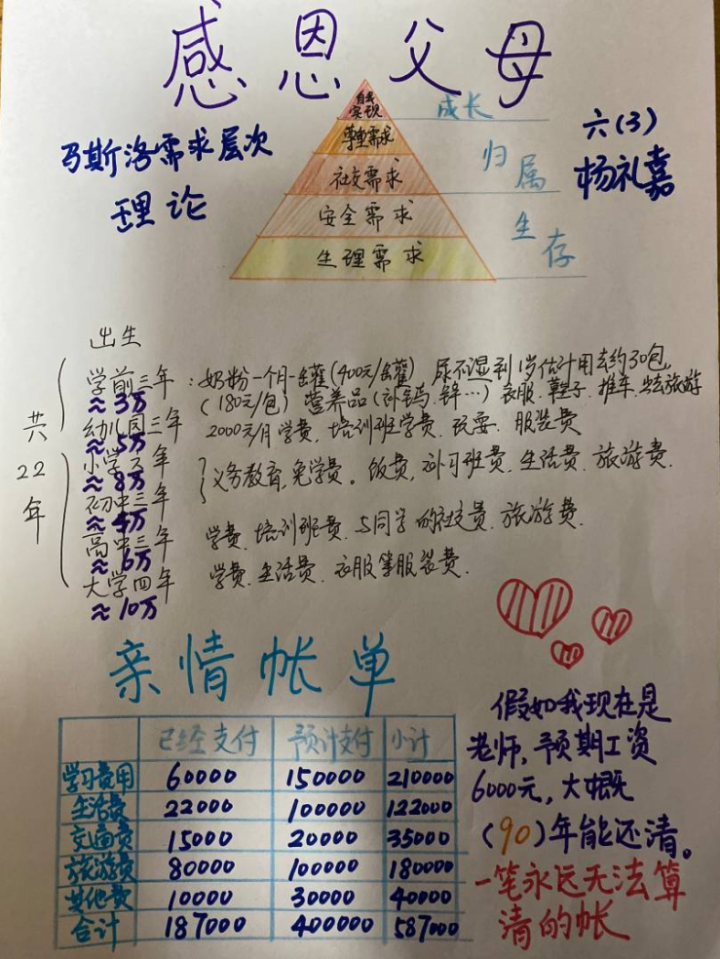 感恩父母
马斯洛需求层次
理论
自我
实现
尊重需求
社交需求
安全需求
生理需求
成长
归属
生存
六(3)
杨礼嘉
共22年
出生
学前三年：奶粉一个月一罐(400元/罐) 尿不湿到1岁估计用去约30包,
≈3万
(180元/包) 营养品(补钙、锌…) 衣服、鞋子、推车、出去旅游
幼儿园三年 2000元/月学费、培训班学费、玩耍、服装费
≈5万
小学六年
≈8万
初中三年
≈4万
}义务教育,免学费。饭费、补习班费、生活费、旅游费、
高中三年 学费、培训班费、与同学的社交费、旅游费、
≈6万
大学四年 学费、生活费、衣服等服装费、
≈10万
亲情帐单
已经支付 预计支付 小计
学习费用 60000 150000 210000
生活费 22000 100000 122000
交通费 15000 20000 35000
旅游费 80000 100000 180000
其他费 10000 30000 40000
合计 187000 400000 587000
假如我现在是
老师，预期工资
6000元，大概
(90)年能还清。
一笔永远无法算
清的帐